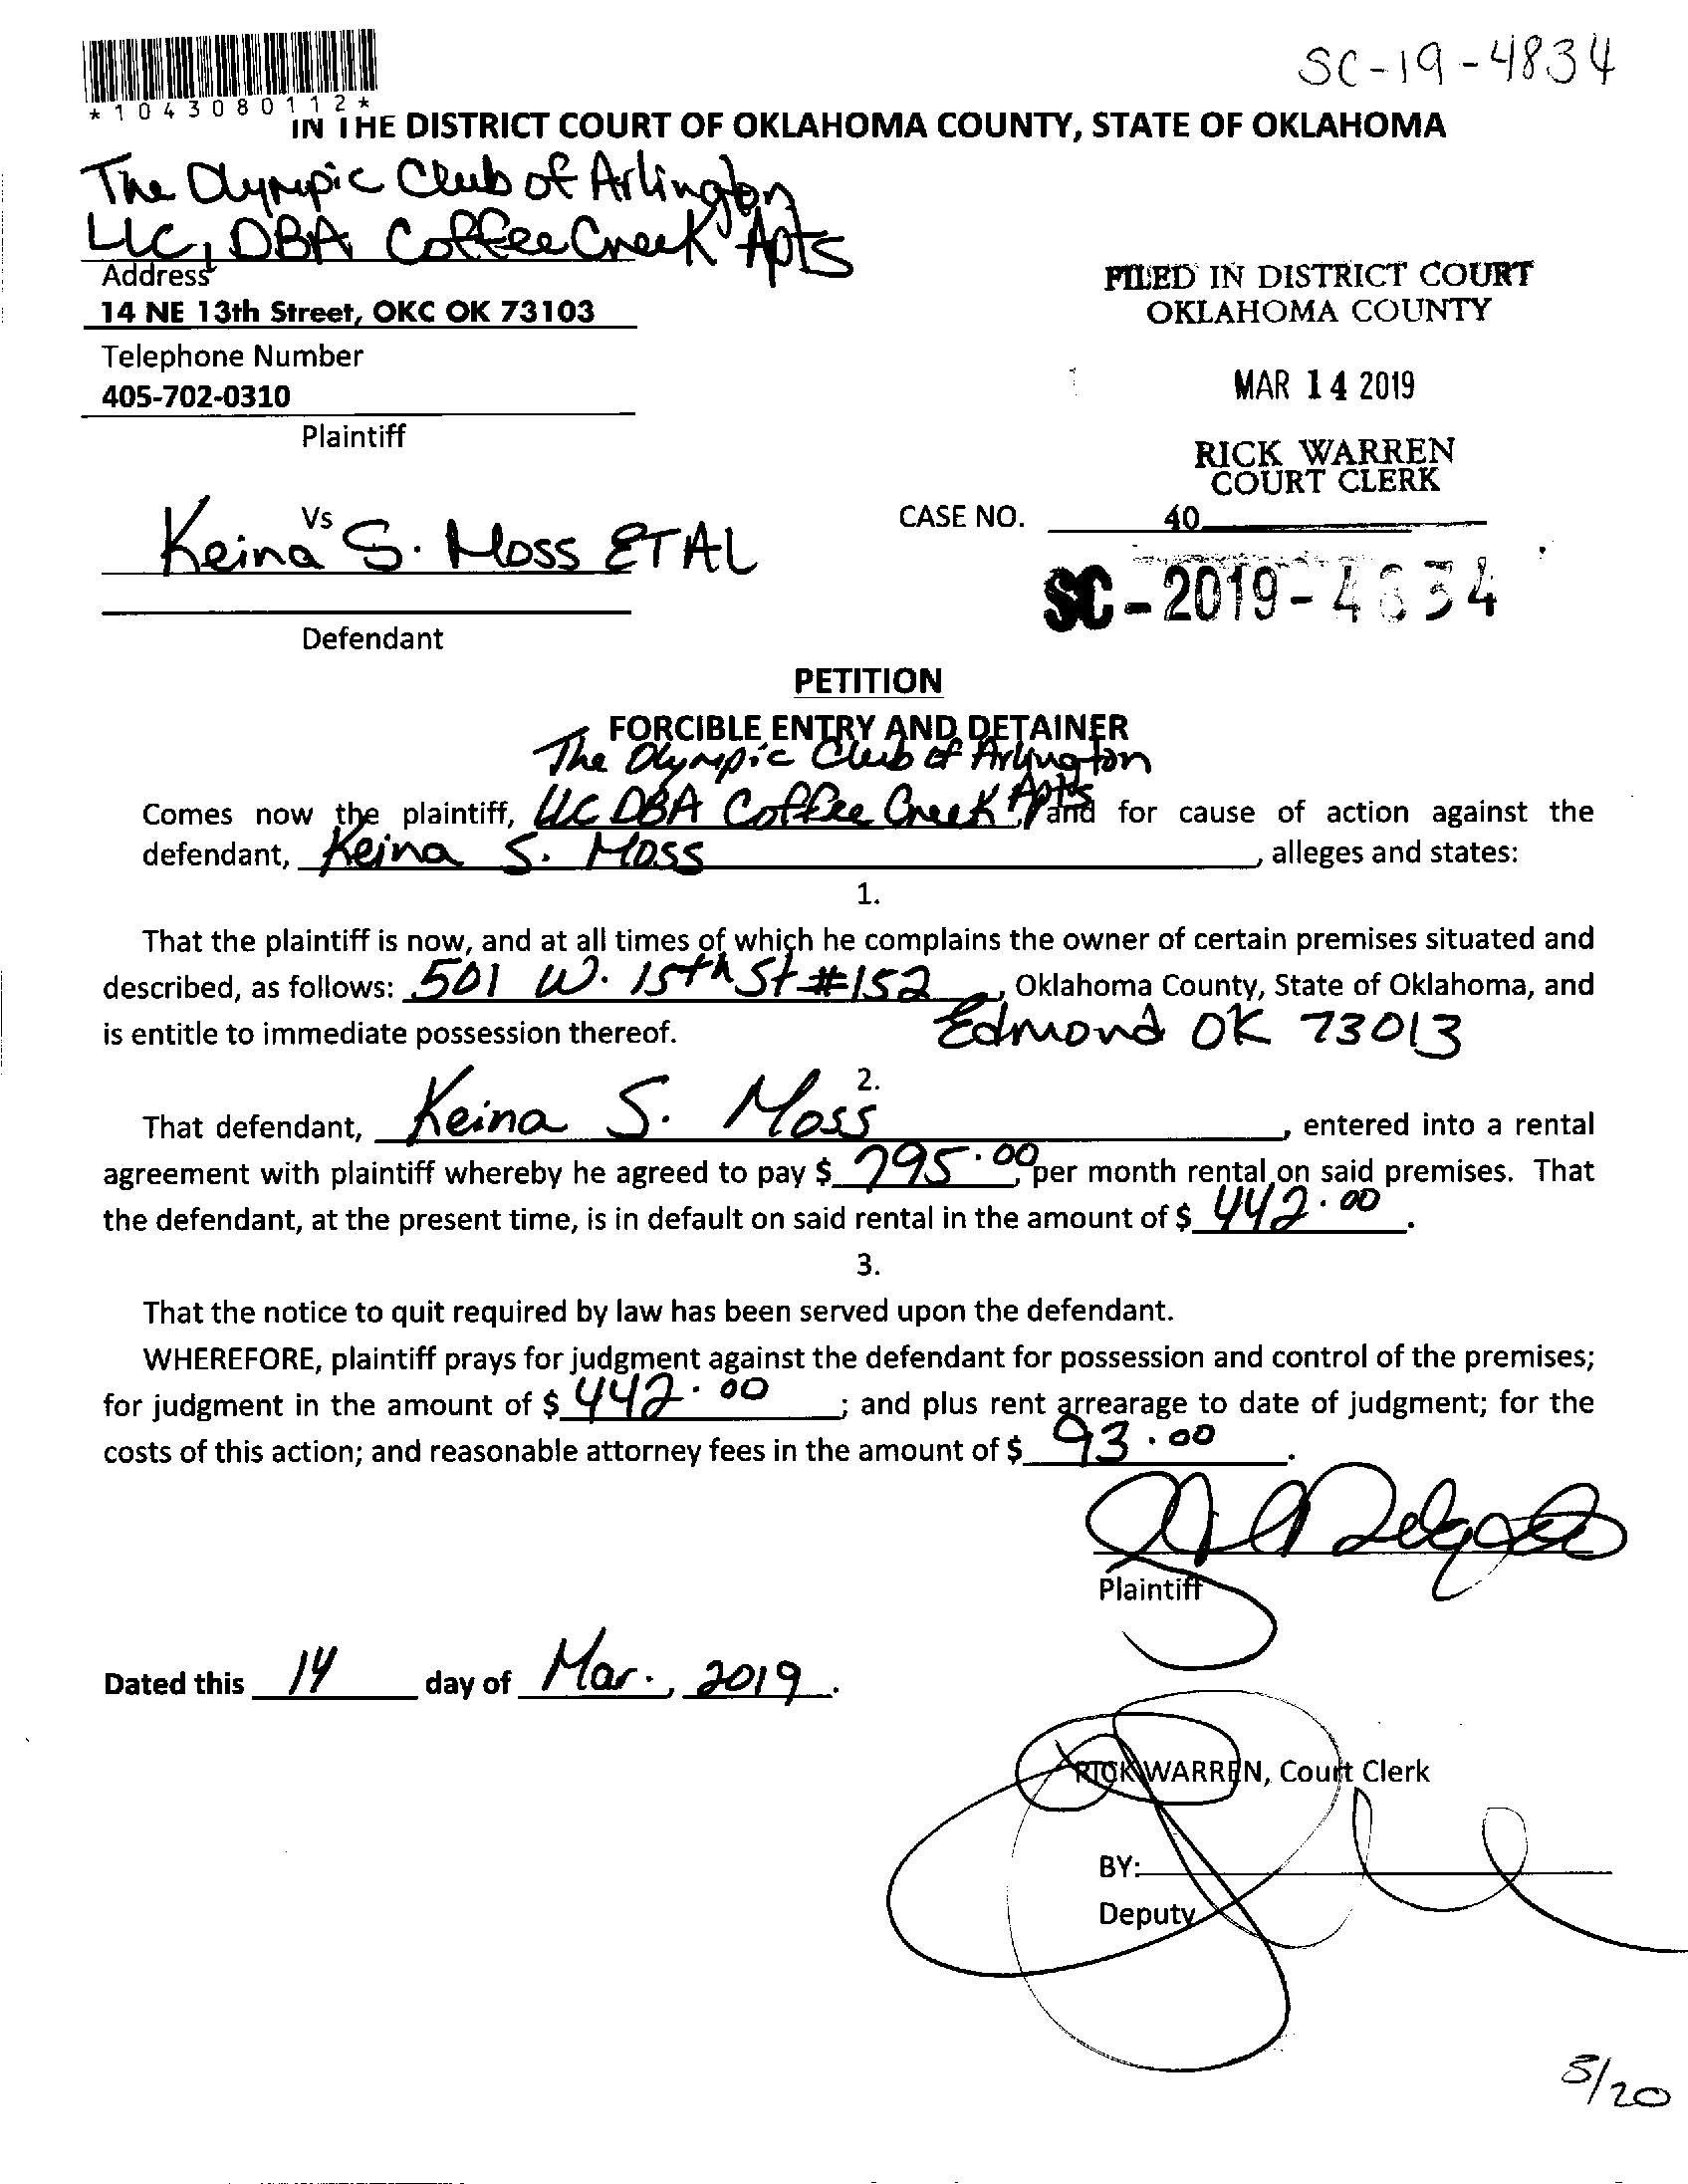 SC-19-4834
*1043080112*
IN THE DISTRICT COURT OF OKLAHOMA COUNTY, STATE OF OKLAHOMA
The Olympic Club of Arlington
LLC, DBA Coffee Creek Apts
Address
14 NE 13th Street, OKC OK 73103
Telephone Number
405-702-0310
Plaintiff
FILED IN DISTRICT COURT
OKLAHOMA COUNTY
MAR 14 2019
RICK WARREN
COURT CLERK
Vs
Keina S. Moss ETAL
Defendant
CASE NO. 40
SC-2019-4834
PETITION
FORCIBLE ENTRY AND DETAINER
The Olympic Club of Arlington
Comes now the plaintiff, LLC DBA Coffee Creek Apts, and for cause of action against the
defendant, Keina S. Moss, alleges and states:
1.
That the plaintiff is now, and at all times of which he complains the owner of certain premises situated and
described, as follows: 501 W. 15th St #152, Oklahoma County, State of Oklahoma, and
is entitle to immediate possession thereof. Edmond OK 73013
2.
That defendant, Keina S. Moss, entered into a rental
agreement with plaintiff whereby he agreed to pay $ 795.00, per month rental on said premises. That
the defendant, at the present time, is in default on said rental in the amount of $ 442.00.
3.
That the notice to quit required by law has been served upon the defendant.
WHEREFORE, plaintiff prays for judgment against the defendant for possession and control of the premises;
for judgment in the amount of $ 442.00; and plus rent arrearage to date of judgment; for the
costs of this action; and reasonable attorney fees in the amount of $ 93.00.
Plaintiff
Dated this 14 day of Mar., 2019.
RICK WARREN, Court Clerk
BY:
Deputy